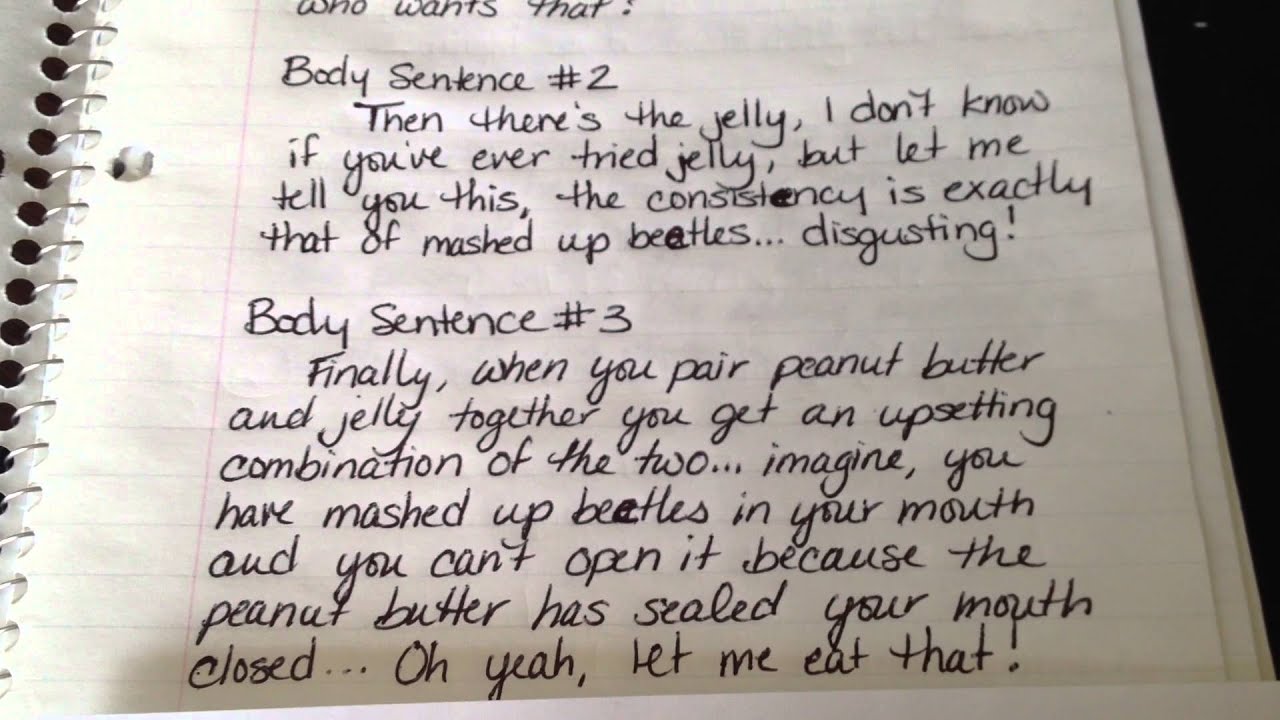 who wants that!
Body Sentence #2
Then there's the jelly, I don't know
if you've ever tried jelly, but let me
tell you this, the consistency is exactly
that of mashed up beetles... disgusting!
Body Sentence #3
Finally, when you pair peanut butter
and jelly together you get an upsetting
combination of the two... imagine, you
have mashed up beetles in your mouth
and you can't open it because the
peanut butter has sealed your mouth
closed... Oh yeah, let me eat that!